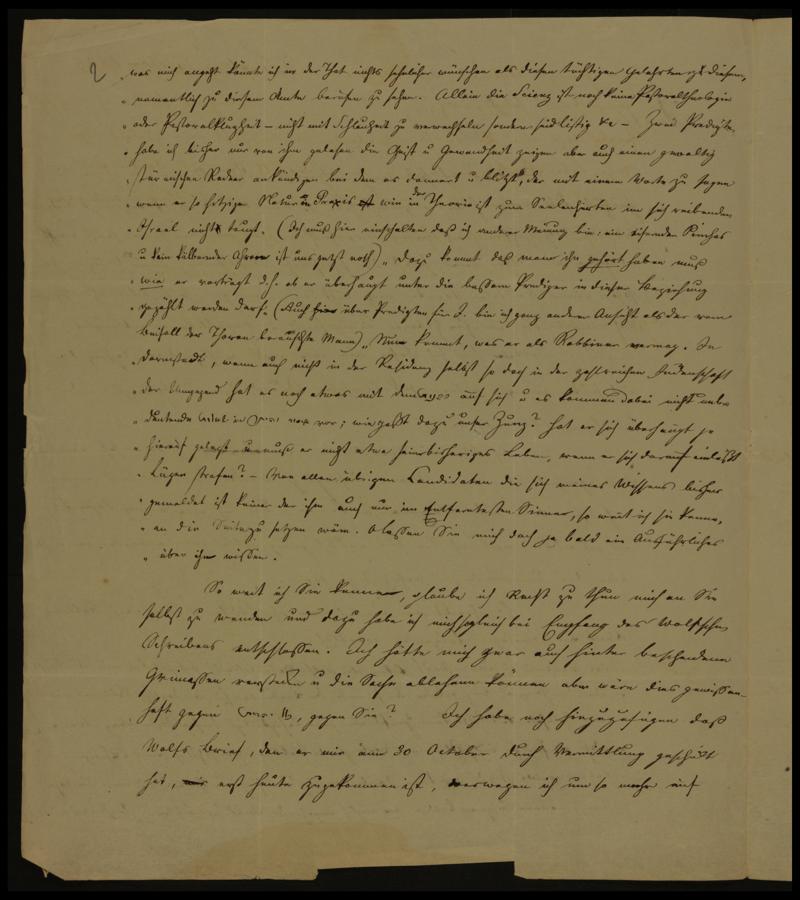 2
" was mich angeht könnte ich in der That nichts sehnlicher wünschen als diesen tüchtigen Gelehrten zu diesem,
" namentlich zu diesem Amte berufen zu sehen. Allein die Scienz ist noch keine Pastoraltheologie
" oder Pastoralklugheit – nicht mit Schlauheit zu verwechseln sondern &c – Zwei Predigten
" habe ich bisher nur von ihm gelesen die Geist u Gewandtheit zeigen aber auch einen gewaltig
" stürmischen Redner ankündigen bei dem es donnert u blitzt, der mit einem Worte zu sagen
" wenn er so hitziger Natur in Praxis ist wie in der Theorie ist zum Seelenhirten im sich reibenden
" Israel nicht taugt. (Ich muß hier einschalten daß ich anderer Meinung bin: ein eifernder Pinchas
u kein kälbernder Ahron ist uns jetzt noth) " Dazu kommt daß man ihn gehört haben muß
" wie er vorträgt d.h. ob er überhaupt unter die bessern Prediger in dieser Beziehung
" gezählt werden darf. (Auch über Predigten für J. bin ich ganz andrer Ansicht als der vom
Beifall der Thoren berauschte Mann) " Nun kommt, was er als Rabbiner vermag. In
" Darmstadt, wenn auch nicht in der Residenz selbst so doch in der zahlreichen Judenschaft
" der Umgegend hat es noch etwas mit dem auf sich u es kommen dabei nicht unbe
" deutende vor; wie paßt dazu unser Zunz? hat er sich überhaupt je
" hierauf gelegt muß er nicht etwa sein bisheriges Leben, wenn er sich darauf einläßt
" Lügen strafen? – Von allen übrigen Candidaten die sich meines Wissens bisher
" gemeldet ist keiner der ihm auch nur im Entferntesten Sinne, so weit ich sie kenne,
" an die Seite zu setzen wäre. Lassen Sie mich doch ja bald ein Ausführliches
" über ihn wissen.
So weit ich Sie kenne, glaube ich Recht zu thun mich an Sie
selbst zu wenden und dazu habe ich mich sogleich bei Empfang des Wolfschen
Schreibens entschlossen. Ich hätte mich zwar auch hinter bescheidene
Grimassen verstecken u die Sache ablehnen können aber wäre dies gewissen-
haft gegen gegen Sie? Ich habe noch hinzuzufügen daß
Wolfs Brief, den er mir am 30 October durch Vermittlung geschickt
hat, erst heute zugekommen ist, weswegen ich um so mehr auf